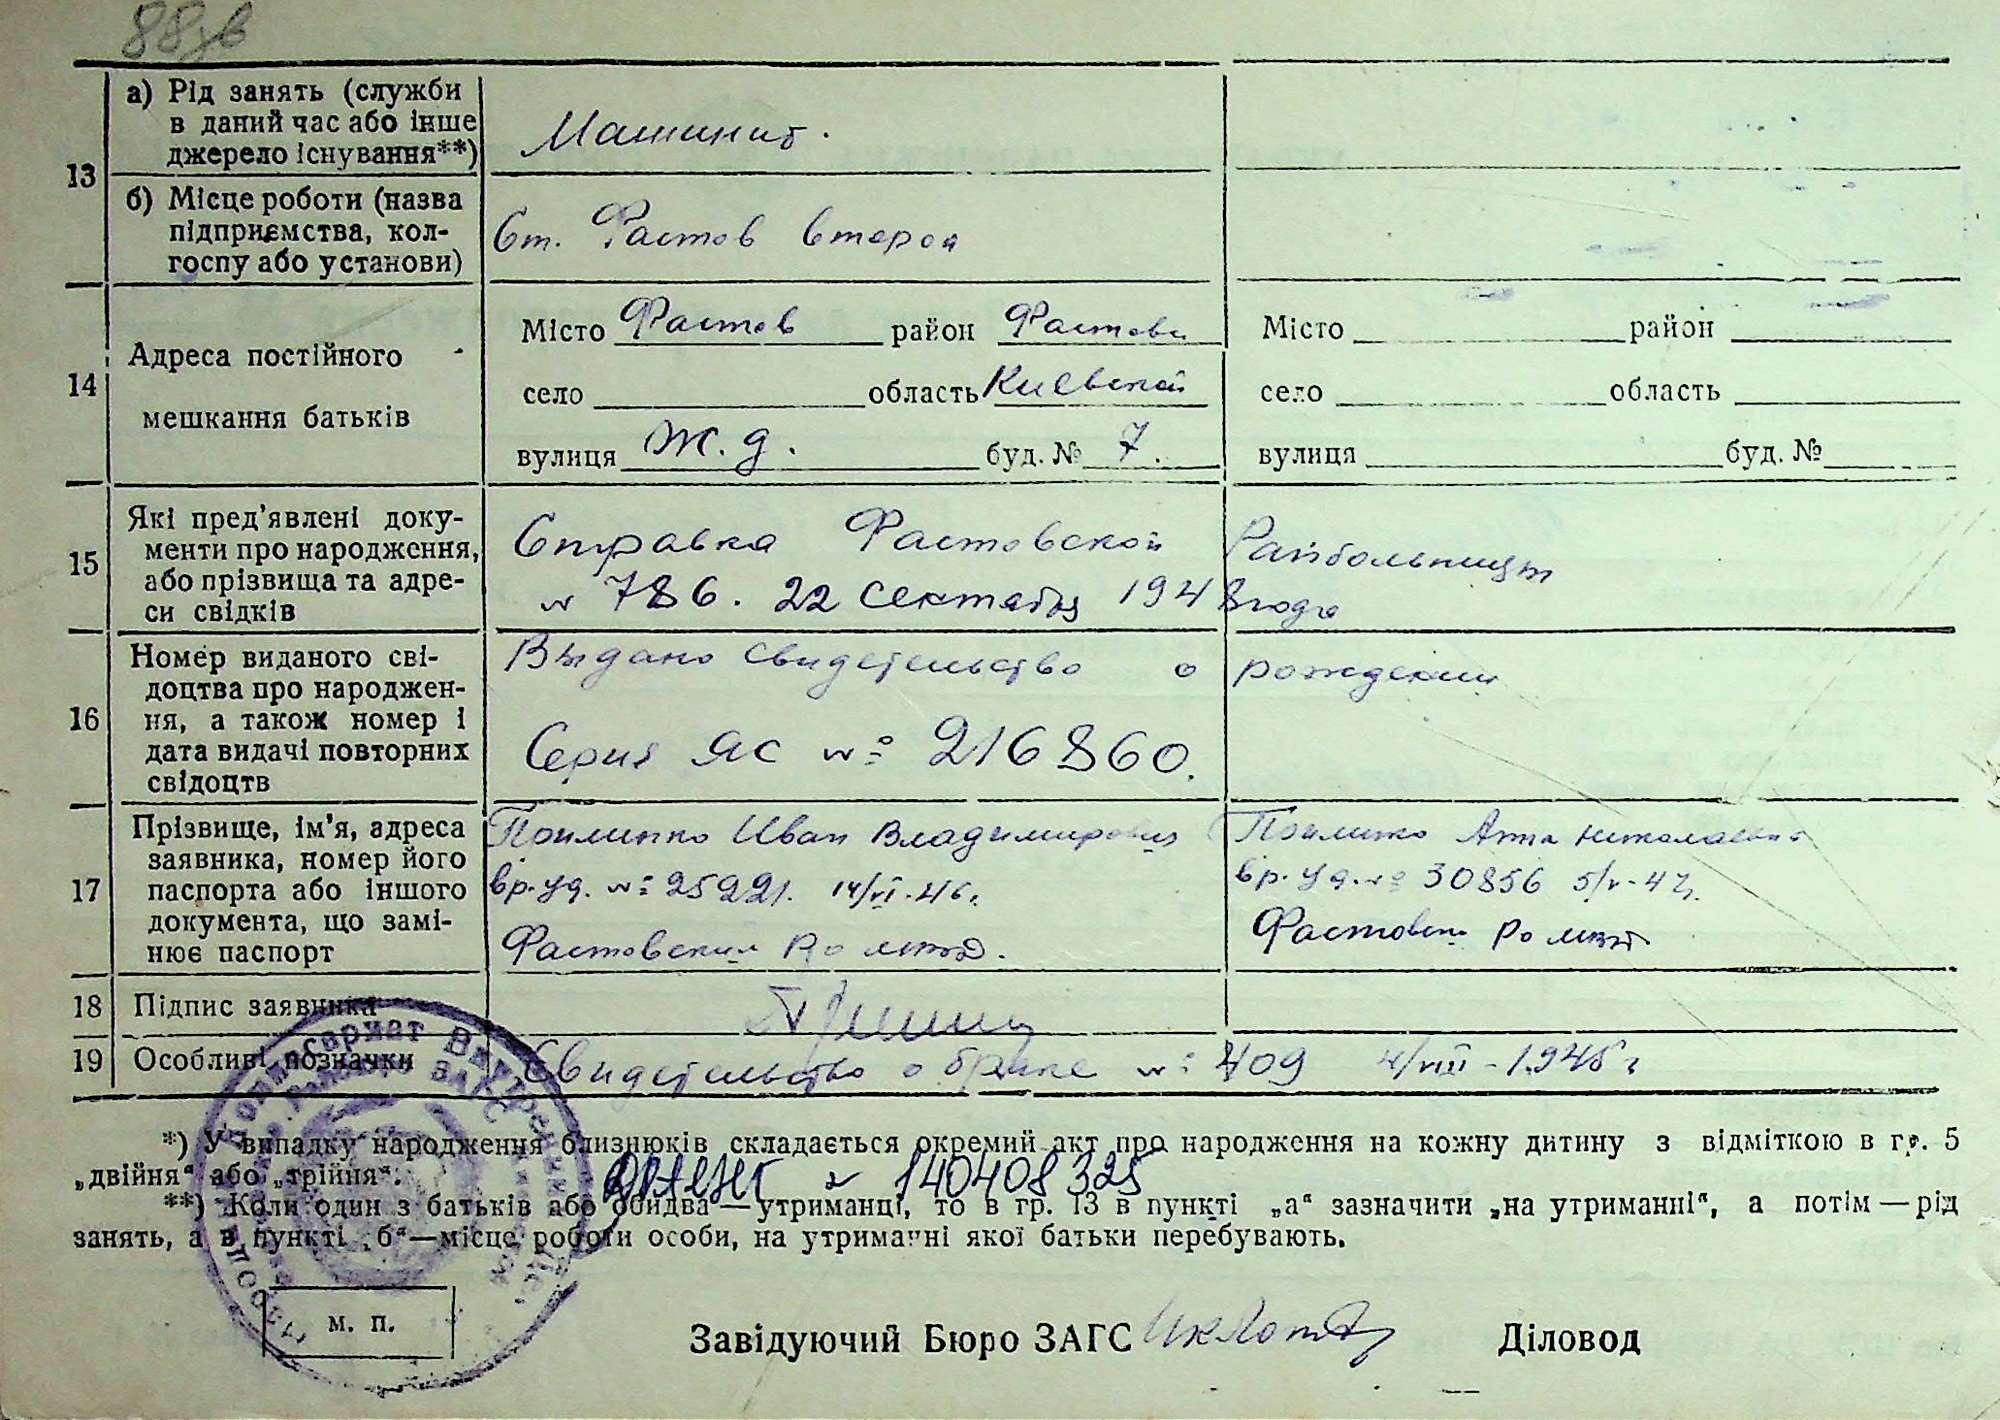 88зв
13
а) Рід занять (служби
в даний час або інше
джерело існування**)
Машинист.
б) Місце роботи (назва
підприємства, кол-
госпу або установи)
Ст. Фастов второй
14
Адреса постійного
мешкання батьків
Місто Фастов район Фастовск
село область Киевской
вулиця Ж. д. буд. № 7.
Місто район
село область
вулиця буд. №
15
Які пред'явлені доку-
менти про народження,
або прізвища та адре-
си свідків
Справка Фастовской Райбольницы
№ 786. 22 Сентября 1948 года
16
Номер виданого сві-
доцтва про народжен-
ня, а також номер і
дата видачі повторних
свідоцтв
Выдано свидетельство о рождении
Серия ЯС № 216860.
17
Прізвище, ім'я, адреса
заявника, номер його
паспорта або іншого
документа, що замі-
нює паспорт
Иван Владимирович
вр. уд. № 25221. 14/VI-46г.
Фастовским Ро
Николаевна
вр. уд. № 30856 5/V-47г.
Фастовским Ро
18 Підпис заявника
19 Особливі позначки
Свидетельство о браке № 409 4/VIII-1945г
*) У випадку народження близнюків складається окремий акт про народження на кожну дитину з відміткою в гр. 5
„двійня“ або „трійня“.
140408325
**) Коли один з батьків або обидва — утриманці, то в гр. 13 в пункті „а“ зазначити „на утриманні“, а потім — рід
занять, а в пункті „б“—місце роботи особи, на утриманні якої батьки перебувають.
м. п.
Завідуючий Бюро ЗАГС
Діловод